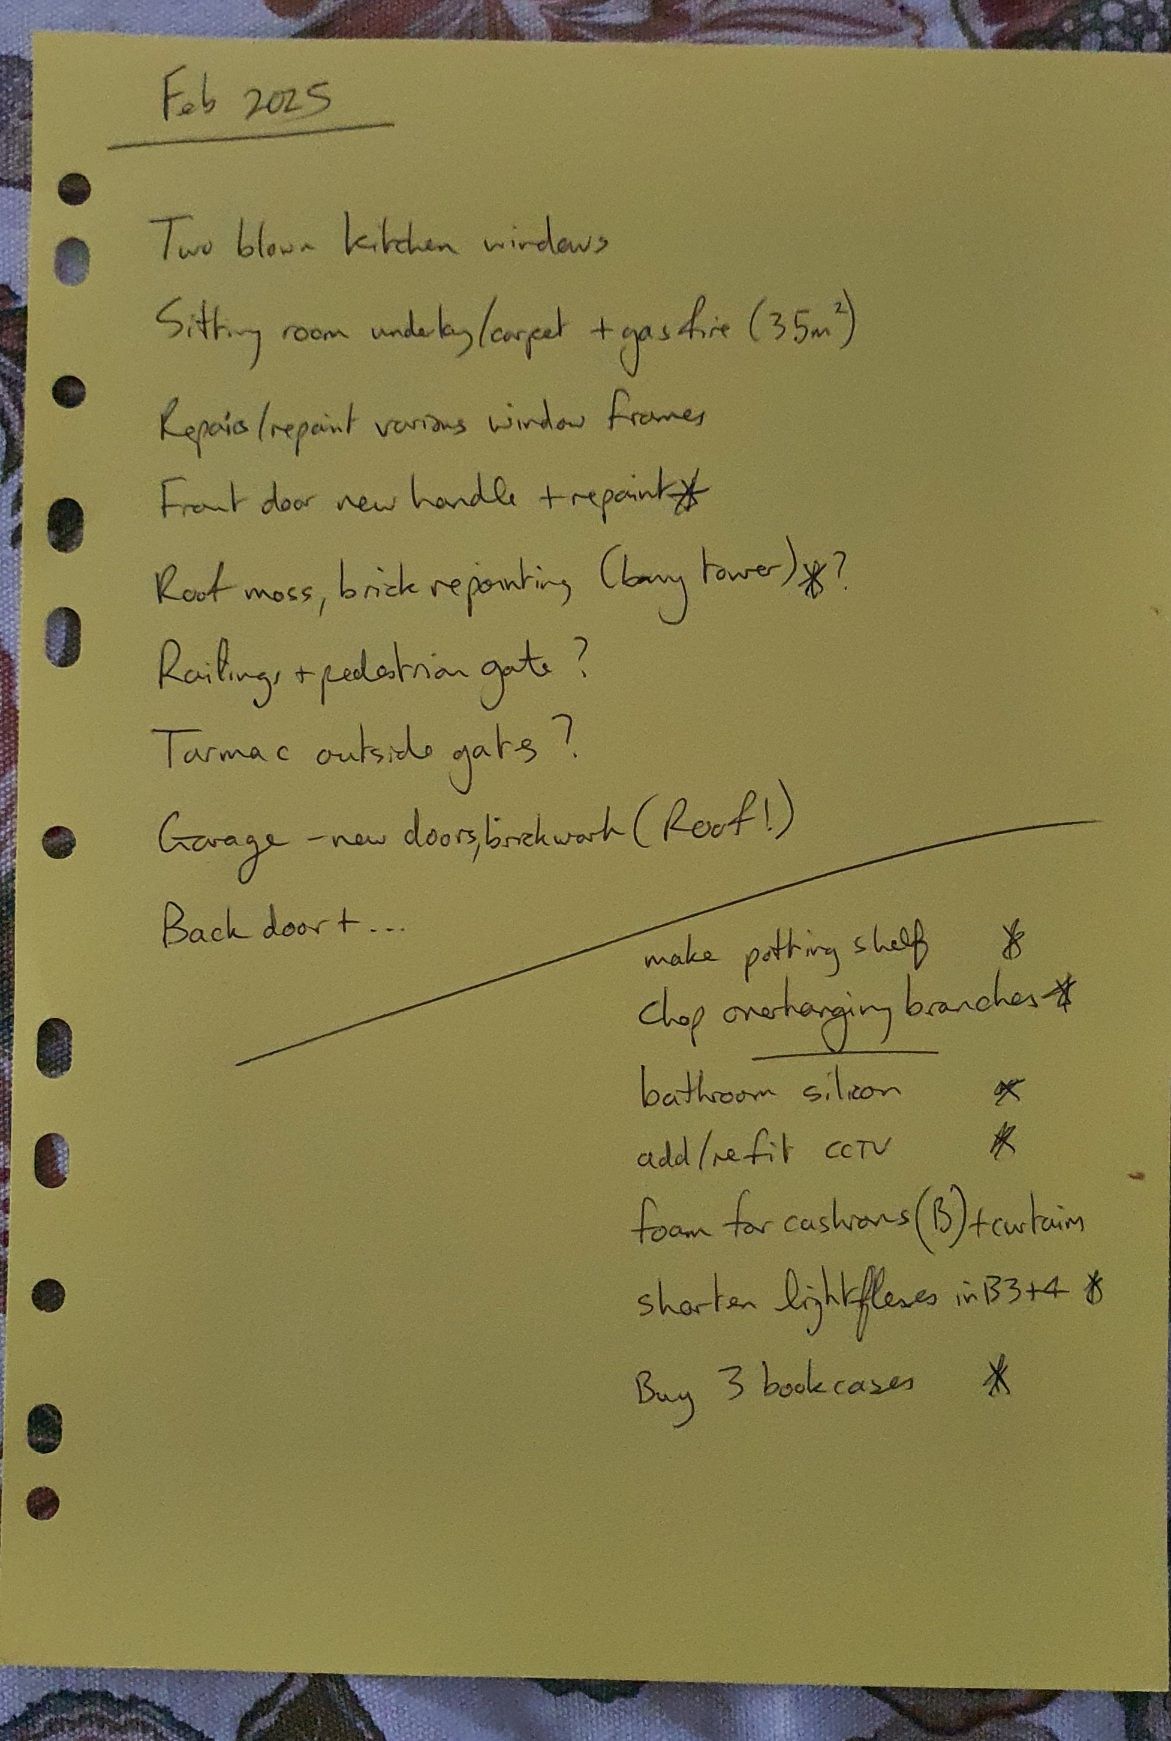 Feb 2025
Two blown kitchen windows
Sitting room underlay/carpet + gas fire (35m²)
Repairs/repaint various window frames
Front door new handle + repaint *
Roof moss, brick repointing (buy tower) * ?
Railings + pedestrian gate ?
Tarmac outside gates ?
Garage - new doors, brickwork (Roof!)
Back door + ...
make potting shelf *
chop overhanging branches *
bathroom silicon *
add/refit CCTV *
foam for cushions (B) + curtain
shorten light flexes in B3+4 *
Buy 3 bookcases *